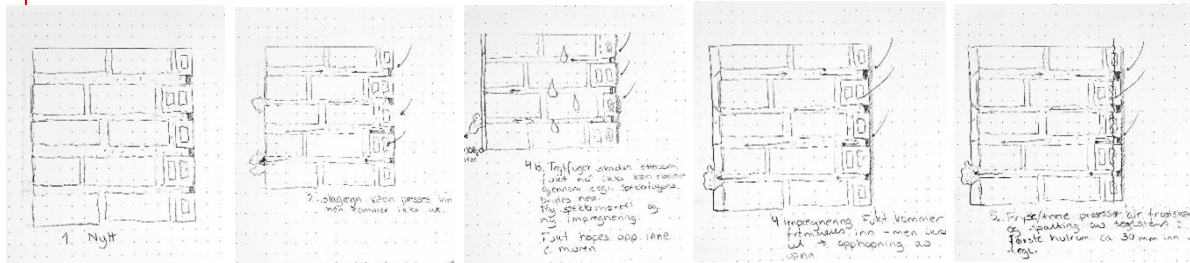 1. Nytt
2. slagregn kan presses inn
men kommer ikke ut.
4b. Teglfuger skades ettersom
fukt nå ikke kan komme
gjennom tegl. Spekkfugene
brytes ned.
Ny spekkmørtel og
ny impregnering.
Fukt hopes opp inne
i muren
4 Impregnering Fukt kommer
fremdeles inn - men ikke
ut → opphopning av
vann
5. Fryse/tine prosesser gir frostskader
og spalting av teglstein i
første hulrom ca 30 mm inn i
tegl.